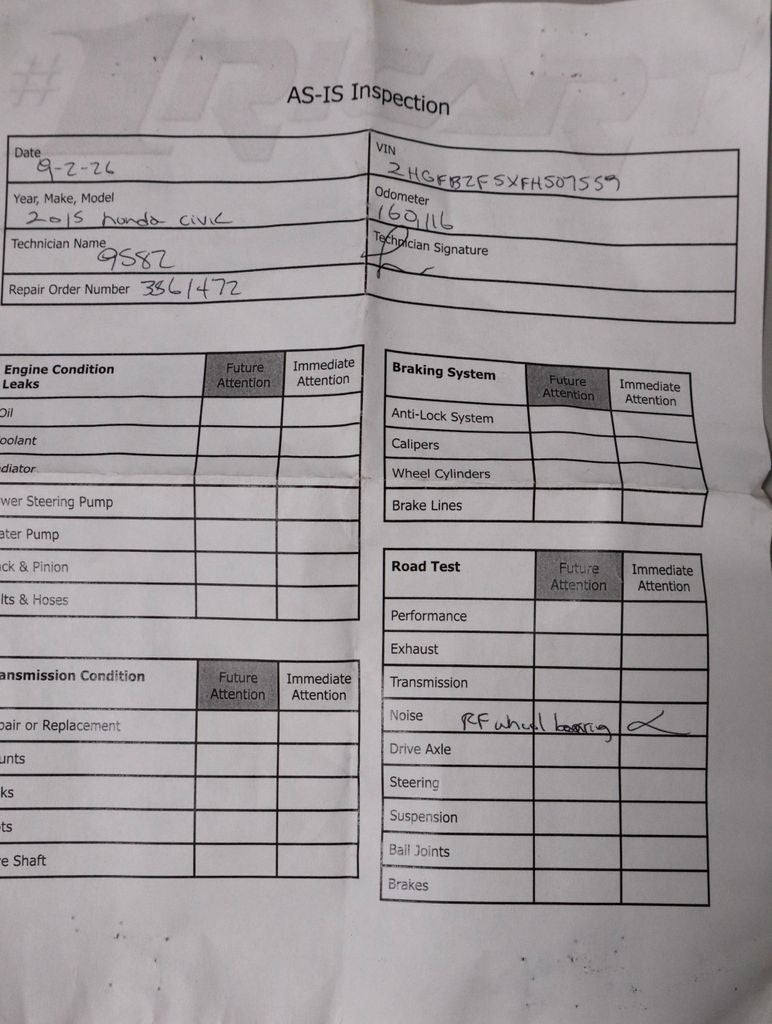 AS-IS Inspection
Date 9-2-26
VIN 2HGFB2F5XFH507559
Year, Make, Model 2015 honda civic
Odometer 160,116
Technician Name 9582
Technician Signature
Repair Order Number 3361472
Engine Condition Leaks Future Attention Immediate Attention
Oil
oolant
diator
wer Steering Pump
ater Pump
ck & Pinion
lts & Hoses
ansmission Condition Future Attention Immediate Attention
pair or Replacement
unts
ks
ts
e Shaft
Braking System Future Attention Immediate Attention
Anti-Lock System
Calipers
Wheel Cylinders
Brake Lines
Road Test Future Attention Immediate Attention
Performance
Exhaust
Transmission
Noise RF wheel bearing
Drive Axle
Steering
Suspension
Ball Joints
Brakes